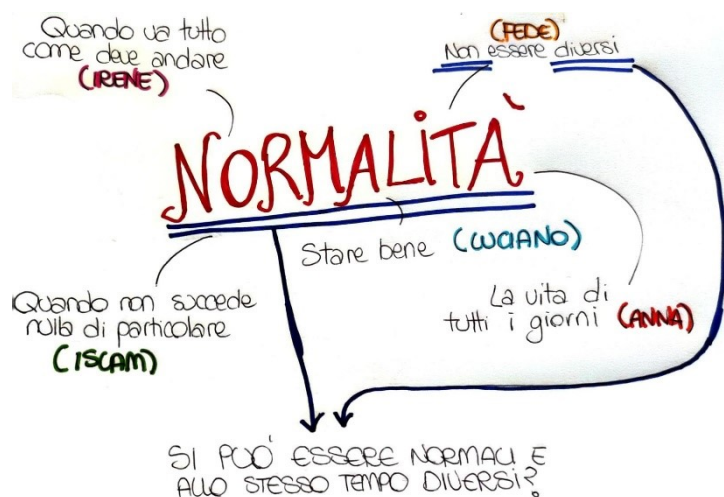 Quando va tutto
come deve andare
(IRENE)
(FEDE)
Non essere diversi
NORMALITÀ
Stare bene (LUCIANO)
Quando non succede
nulla di particolare
(ISCAM)
La vita di
tutti i giorni (ANNA)
SI PUÒ ESSERE NORMALI E
ALLO STESSO TEMPO DIVERSI?